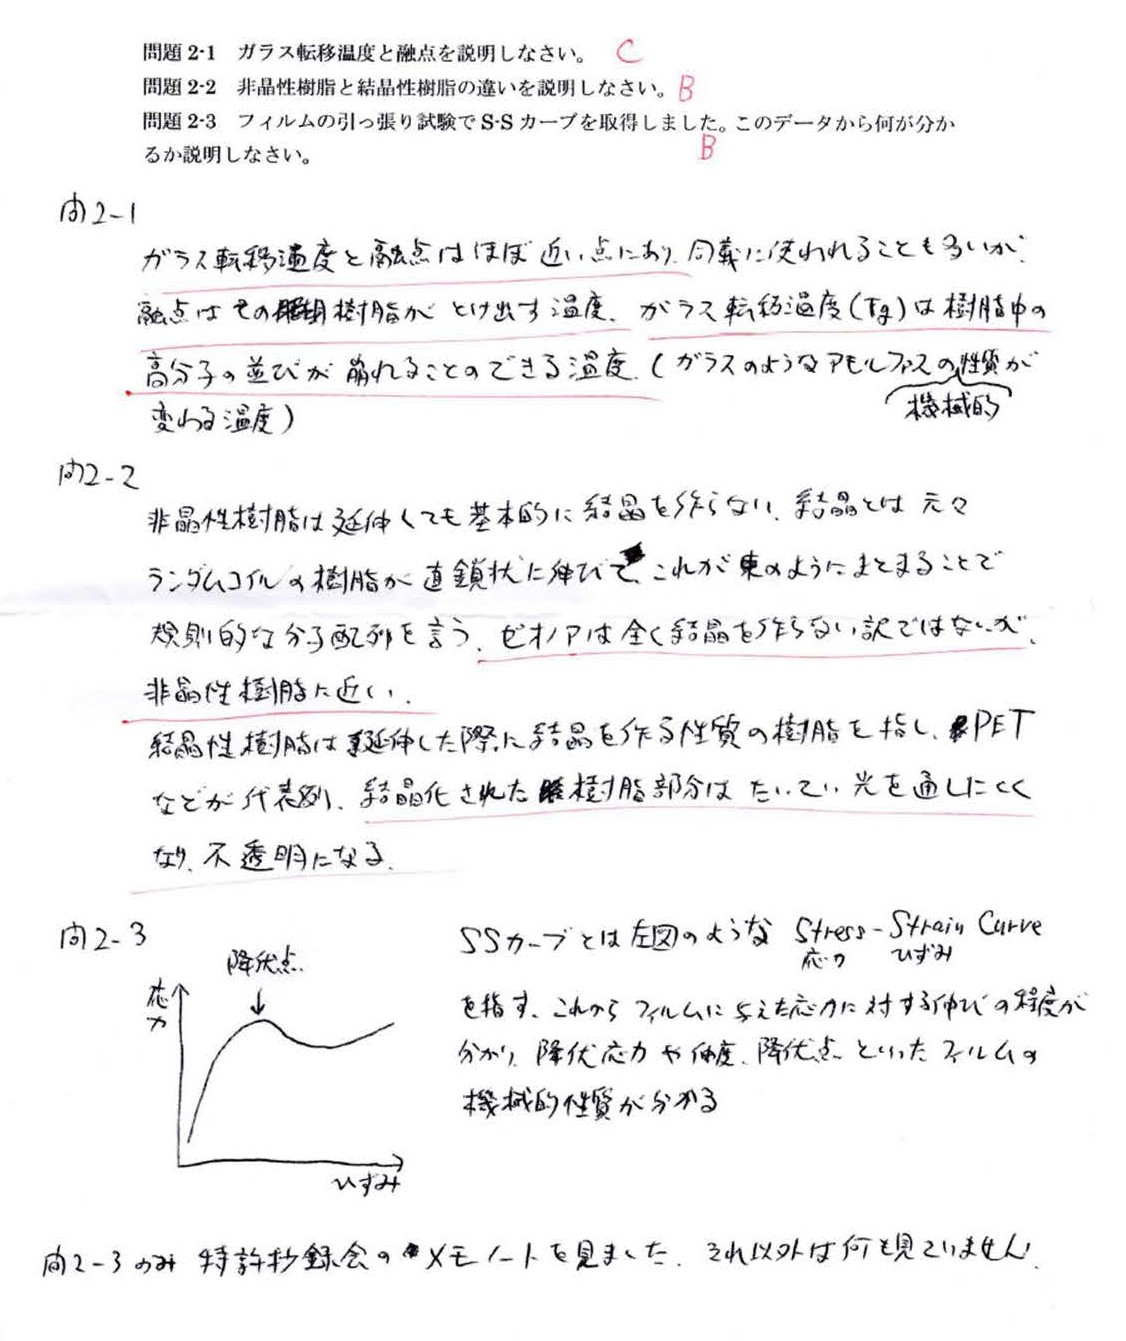 問題 2-1 ガラス転移温度と融点を説明しなさい。 C
問題 2-2 非晶性樹脂と結晶性樹脂の違いを説明しなさい。 B
問題 2-3 フィルムの引っ張り試験で S-S カーブを取得しました。このデータから何が分か
るか説明しなさい。 B
問2-1
ガラス転移温度と融点はほぼ近い点にあり、同義に使われることも多いが、
融点はその樹脂がとけ出す温度、ガラス転移温度(Tg)は樹脂中の
高分子の並びが崩れることのできる温度、(ガラスのようなアモルファスの性質が
機械的
変わる温度)
問2-2
非晶性樹脂は延伸しても基本的に結晶を作らない、結晶とは元々
ランダムコイルの樹脂が直鎖状に伸びて、これが束のようにまとまることで
規則的な分子配列を言う、ゼオノアは全く結晶を作らない訳ではないが、
非晶性樹脂に近い.
結晶性樹脂は延伸した際に結晶を作る性質の樹脂を指し、PET
などが代表例、結晶化された樹脂部分はたいてい光を通しにくく
なり、不透明になる.
問2-3
降伏点
応力
ひずみ
SSカーブとは左図のような Stress-Strain Curve
応力 ひずみ
を指す、これからフィルムに与えた応力に対する伸びの程度が
分かり、降伏応力や伸度、降伏点といったフィルムの
機械的性質が分かる
問2-3のみ 特許抄録会のメモノートを見ました、それ以外は何も見ていません.